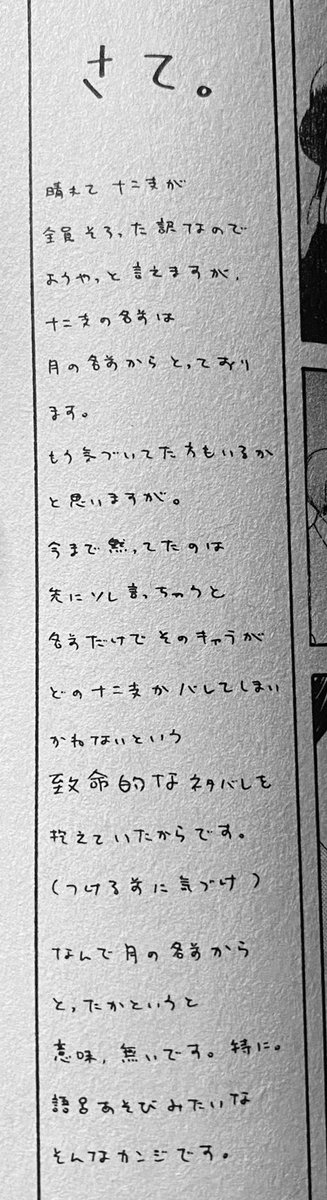 さて。
晴れて 十二支が
全員 そろった 訳なので
ようやっと 言えますが、
十二支の名前は
月の名前から とっており
ます。
もう気づいてた方もいるか
と思いますが。
今まで 黙ってたのは
先に ソレ 言っちゃうと
名前だけで そのキャラが
どの十二支か バレてしまい
かねないという
致命的な ネタバレを
抱えていたからです。
(つける前に 気づけ)
なんで 月の名前から
とったかというと
意味、無いです。特に。
語呂あそび みたいな
そんなカンジです。